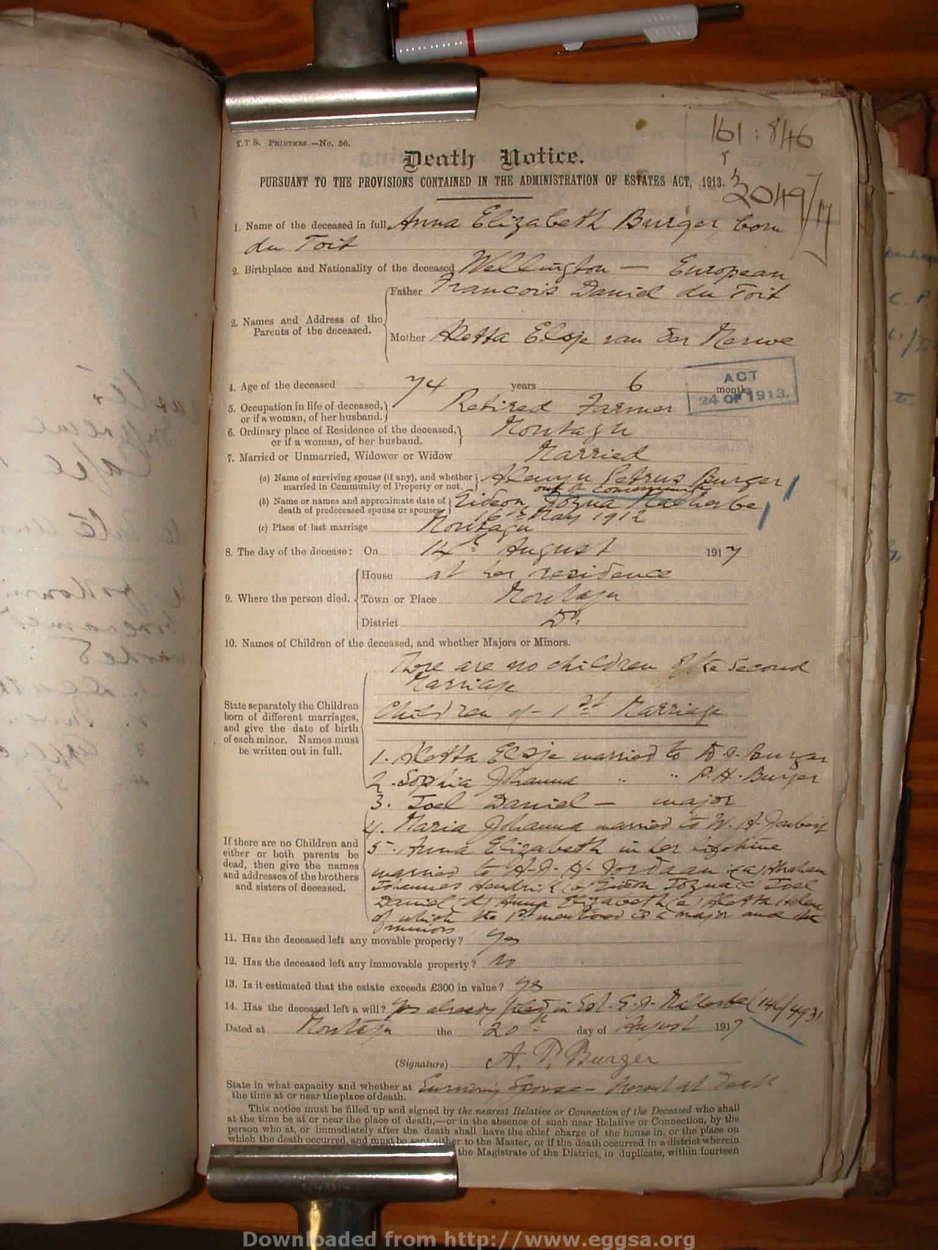 161 : 846
T.T.S. PRINTERS.—No, 56.
Death Notice.
PURSUANT TO THE PROVISIONS CONTAINED IN THE ADMINISTRATION OF ESTATES ACT, 1913.
2049/17
1. Name of the deceased in full Anna Elizabeth Burger born
du Toit
2. Birthplace and Nationality of the deceased Wellington — European
2. Names and Address of the Parents of the deceased.
Father Francois Daniel du Toit
Mother Aletta Elsje van der Merwe
4. Age of the deceased 74 years 6 months
ACT
24 OF 1913.
5. Occupation in life of deceased, or if a woman, of her husband. Retired Farmer
6. Ordinary place of Residence of the deceased, or if a woman, of her husband. Montagu
7. Married or Unmarried, Widower or Widow Married
(a) Name of surviving spouse (if any), and whether married in Community of Property or not. Petrus Burger
out of Community
(b) Name or names and approximate date of death of predeceased spouse or spouses Gideon Jozua Malherbe
16th May 1912
(c) Place of last marriage Montagu
8. The day of the decease: On 14th August 1917
9. Where the person died.
House at her residence
Town or Place Montagu
District Do.
10. Names of Children of the deceased, and whether Majors or Minors.
There are no children of the second
Marriage
State separately the Children
born of different marriages,
and give the date of birth
of each minor. Names must
be written out in full.
Children of 1st Marriage
1. Aletta Elsje married to Burger
2. Sophia Johanna " " P. H. Burger
3. Joel Daniel — major
4. Maria Johanna married to W. A. Joubert
5. Anna Elizabeth in her lifetime
If there are no Children and
either or both parents be
dead, then give the names
and addresses of the brothers
and sisters of deceased.
married to A. J. H. Jordaan (a) Abraham
Johannes Hendrik (b) Gideon Jozua (c) Joel
Daniel (d) Anna Elizabeth (e) Aletta Helena
of which the 1st mentioned is a major and the
minors
11. Has the deceased left any movable property? Yes
12. Has the deceased left any immovable property? No
13. Is it estimated that the estate exceeds £300 in value? Yes
14. Has the deceased left a will? Yes already filed in Est. G. J. Malherbe
Dated at Montagu the 20th day of August 1917
(Signature) A. P. Burger
State in what capacity and whether at the time at or near the place of death. Surviving Spouse – Present at Death
This notice must be filled up and signed by the nearest Relative or Connection of the Deceased who shall
at the time be at or near the place of death,—or in the absence of such near Relative or Connection, by the
person who at, or immediately after the death shall have the chief charge of the house in, or the place on
which the death occurred, and must be sent either to the Master, or if the death occurred in a district wherein
the Magistrate of the District, in duplicate, within fourteen
Downloaded from http://www.eggsa.org